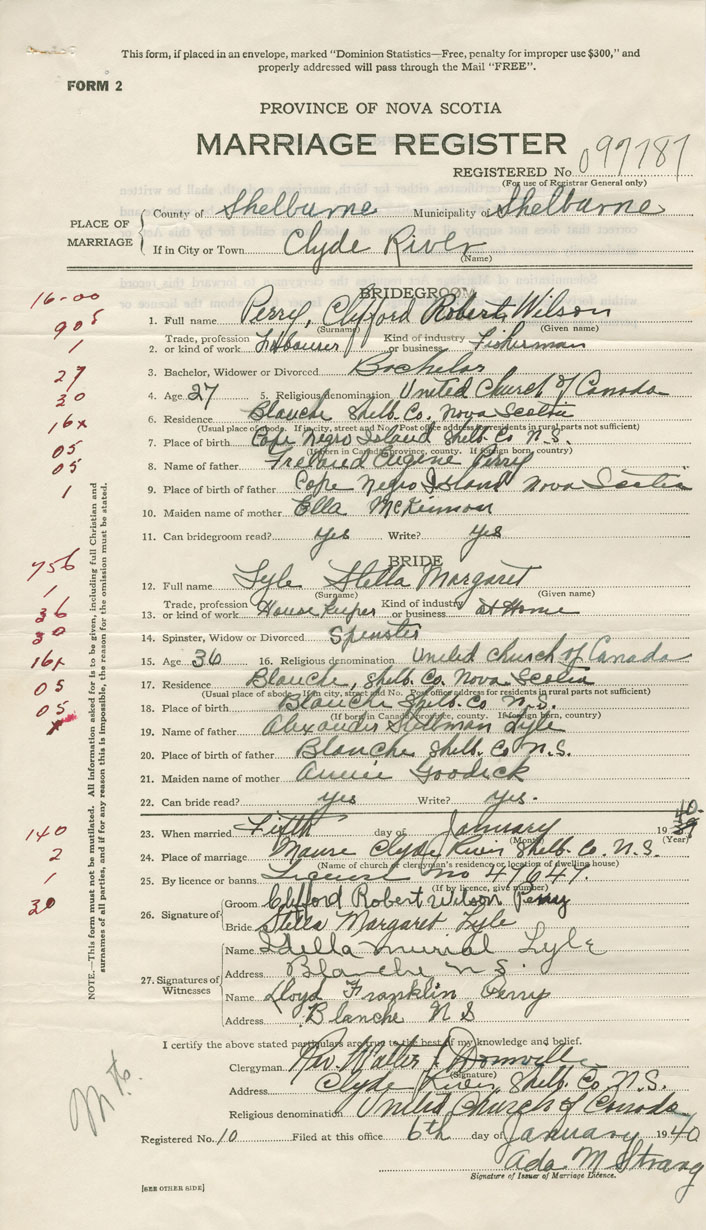 This form, if placed in an envelope, marked "Dominion Statistics—Free, penalty for improper use $300," and
properly addressed will pass through the Mail "FREE".
FORM 2
PROVINCE OF NOVA SCOTIA
MARRIAGE REGISTER
REGISTERED No. 097787
(For use of Registrar General only)
PLACE OF MARRIAGE
County of Shelburne Municipality of Shelburne
If in City or Town Clyde River
(Name)
BRIDEGROOM
16-00
1. Full name Perry, Clifford Robert Wilson
(Surname) (Given name)
908
Trade, profession Kind of industry
2. or kind of work or business Fisherman
1
3. Bachelor, Widower or Divorced Bachelor
27
4. Age 27 5. Religious denomination United Church of Canada
30
6. Residence Blanche Shelb. Co. Nova Scotia
(Usual place of abode. If in city, street and No. Post office address for residents in rural parts not sufficient)
16x
7. Place of birth Cape Negro Island Shelb. Co N.S.
(If born in Canada, province, county. If foreign born, country)
05
8. Name of father Eugene Perry
05
9. Place of birth of father Cape Negro Island Nova Scotia
1
10. Maiden name of mother Ella McKinnon
11. Can bridegroom read? yes Write? yes
BRIDE
756
12. Full name Lyle Stella Margaret
(Surname) (Given name)
1
Trade, profession Kind of industry
13. or kind of work House Keeper or business at Home
36
14. Spinster, Widow or Divorced Spinster
30
15. Age 36 16. Religious denomination United Church of Canada
16x
17. Residence Blanche, Shelb. Co. Nova Scotia
(Usual place of abode. If in city, street and No. Post office address for residents in rural parts not sufficient)
05
18. Place of birth Blanche Shelb. Co N.S.
(If born in Canada, province, county. If foreign born, country)
05
19. Name of father Alexander Lyle
20. Place of birth of father Blanche Shelb. Co N.S.
21. Maiden name of mother Annie Goodick
22. Can bride read? yes Write? yes.
140
23. When married Fifth day of January 1940
(Month) (Year)
2
24. Place of marriage Manse Clyde River Shelb. Co. N.S.
(Name of church or clergyman's residence or location of dwelling house)
1
25. By licence or banns License No 47647
(If by licence, give number)
30
26. Signature of
Groom Clifford Robert Wilson Perry
Bride Stella Margaret Lyle
27. Signatures of Witnesses
Name Lyle
Address Blanche N.S.
Name Lloyd Franklin Perry
Address Blanche N S
I certify the above stated particulars are true to the best of my knowledge and belief.
Clergyman Rev. Walter J. Domville
(Signature)
Address Clyde River, Shelb. Co. N.S.
Religious denomination United Church of Canada
Registered No. 10 Filed at this office 6th day of January 1940
Ada M Strang
Signature of Issuer of Marriage Licence.
[SEE OTHER SIDE]
NOTE.—This form must not be mutilated. All information asked for is to be given, including full Christian and
surnames of all parties, and if for any reason this is impossible, the reason for the omission must be stated.